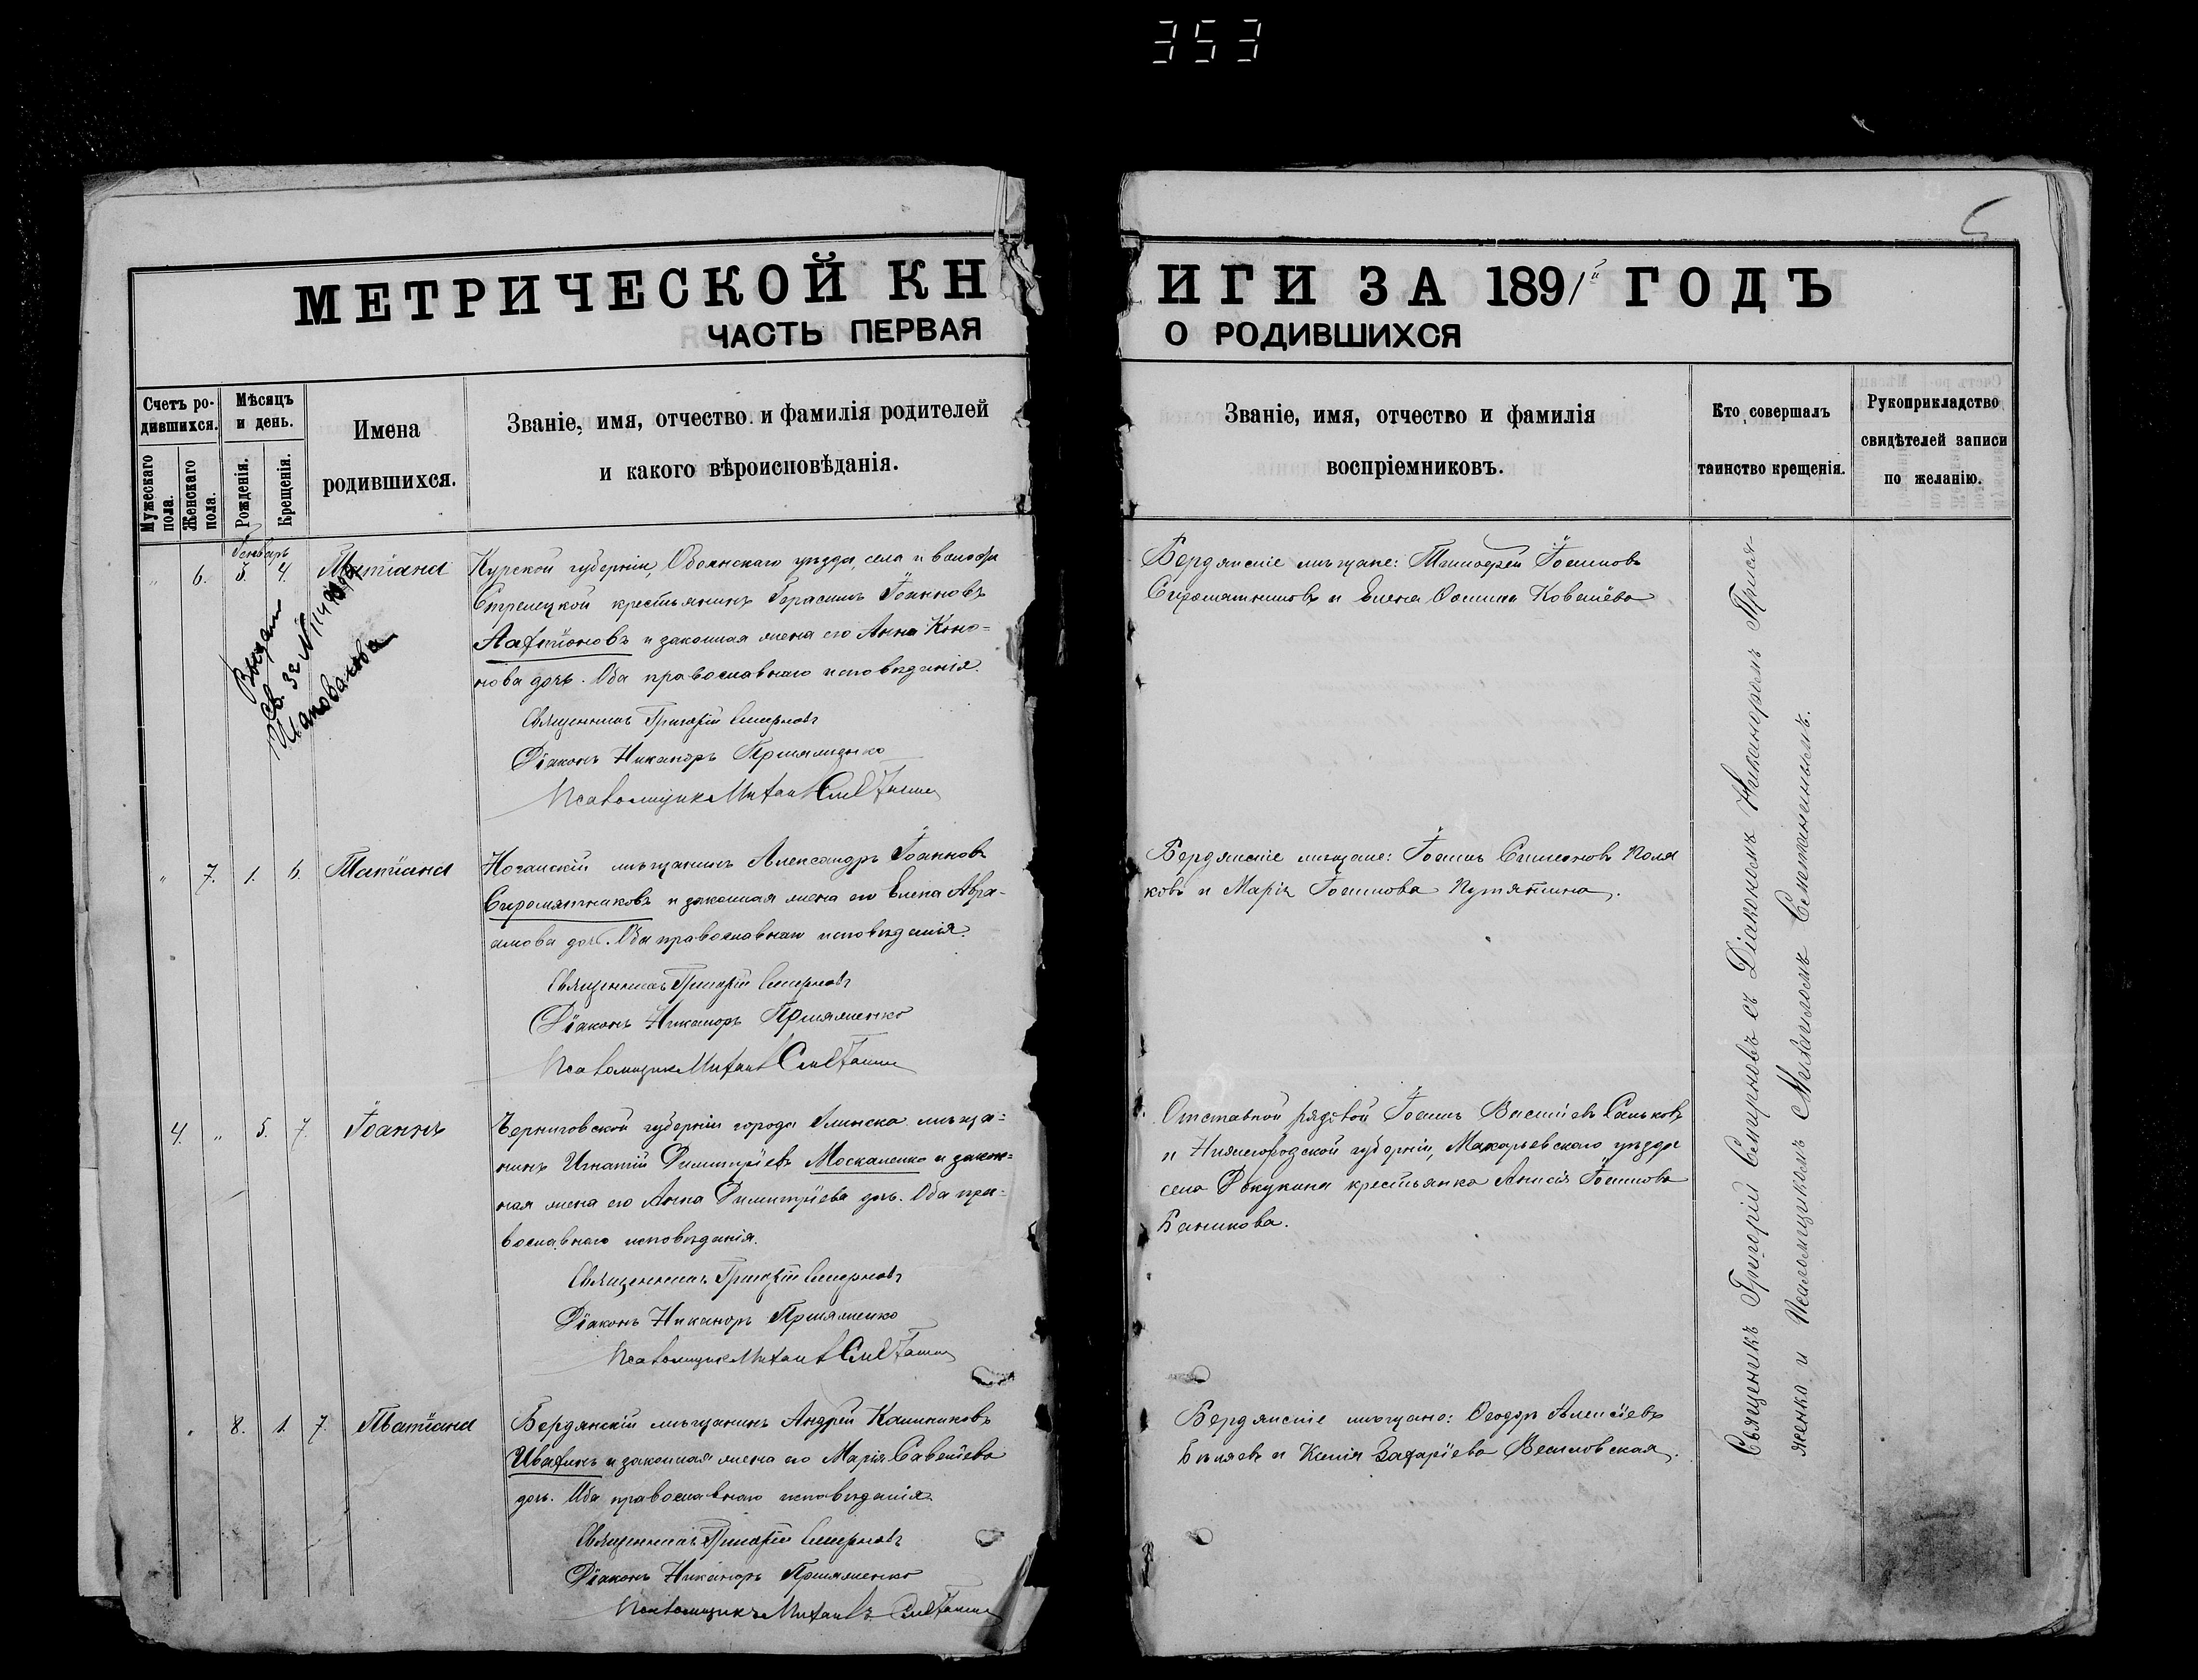 353
5
МЕТРИЧЕСКОЙ КНИГИ ЗА 1891й ГОДЪ
ЧАСТЬ ПЕРВАЯ О РОДИВШИХСЯ
Счетъ ро-
дившихся.
Мужескаго пола.
Женскаго пола.
Мѣсяцъ
и день.
Рожденія.
Крещенія.
Имена
родившихся.
Званіе, имя, отчество и фамилія родителей
и какого вѣроисповѣданія.
Званіе, имя, отчество и фамилія
воспріемниковъ.
Кто совершалъ
таинство крещенія.
Рукоприкладство
свидѣтелей записи
по желанію.
" 6. 3. 4. Татіана
Курской губерніи, Обоянскаго уѣзда, села и волости
Стрелецкой крестьянинъ Герасимъ Іоанновъ
и законная жена его Анна Коно-
нова дочь. Оба православнаго исповѣданія.
Священникъ Григорій Смирновъ
Діаконъ Никаноръ Присяженко
Псаломщикъ Михаилъ
Бердянскіе мѣщане: Тимофей Іоанновъ
Сыромятниковъ и Елена
Выдан
св. за №
" 7. 1. 6. Татіана
Ногайскій мѣщанинъ Александръ Іоанновъ
Сыромятниковъ и законная жена его Елена Авра-
амова дочь. Оба православнаго исповѣданія.
Священникъ Григорій Смирновъ
Діаконъ Никаноръ Присяженко
Псаломщикъ Михаилъ
Бердянскіе мѣщане: Іоаннъ Симеоновъ Поля
ковъ и Марія Іоаннова Путятина.
4. " 5. 7. Іоаннъ
Черниговской губерніи города Глинска мѣща-
нинъ Игнатій Димитріевъ Москаленко и закон-
ная жена его Анна Димитріева дочь. Оба пра-
вославнаго исповѣданія.
Священникъ Григорій Смирновъ
Діаконъ Никаноръ Присяженко
Псаломщикъ Михаилъ
Отставной рядовой Іоаннъ Васильевъ Саньковъ
и Нижегородской губерніи, Макарьевскаго уѣзда
села крестьянка Анисія Іоаннова
Баникова.
" 8. 1. 7. Татіана
Бердянскій мѣщанинъ Андрей Калиниковъ
Ивахинъ и законная жена его Марія Савельева
дочь. Оба православнаго исповѣданія.
Священникъ Григорій Смирновъ
Діаконъ Никаноръ Присяженко
Псаломщикъ Михаилъ
Бердянскіе мѣщане: Ѳеодоръ Алексіевъ
Бѣляевъ и Ксенія Захаріева Веселовская.
Священникъ Григорій Смирновъ съ Діакономъ Никаноромъ Прися-
женко и Псаломщикомъ Михаиломъ